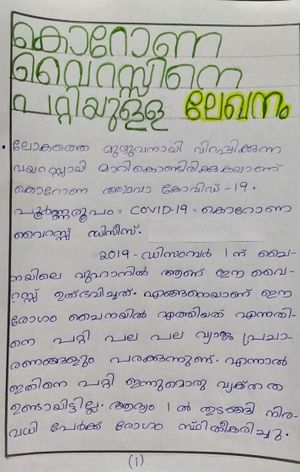 കൊറോണ
വൈറസ്സിനെ
പറ്റിയുള്ള ലേഖനം
• ലോകത്തെ മുഴുവനായി വിറപ്പിക്കുന്ന
വയറസ്സായി മാറികൊണ്ടിരിക്കുകയാണ്
കൊറോണ അഥവാ കോവിഡ് -19.
പൂർണ്ണരൂപം = COVID-19 = കൊറോണ
വൈറസ്സ് ഡിസീസ്.
2019 - ഡിസംബർ 1 ന് ചൈ-
നയിലെ വുഹാനിൽ ആണ് ഈ വൈ-
റസ്സ് ഉത്ഭവിച്ചത്. എങ്ങനെയാണ് ഈ
രോഗം ചൈനയിൽ എത്തിയത് എന്നതി-
നെ പറ്റി പല പല വ്യാജ പ്രചാ-
രണങ്ങളും പരക്കുന്നുണ്ട്. എന്നാൽ
ഇതിനെ പറ്റി ഇന്നുമൊരു വ്യക്തത
ഉണ്ടായിട്ടില്ല. ആദ്യം 1 ൽ തുടങ്ങി നിര-
വധി പേർക്ക് രോഗം സ്ഥിതീകരിച്ചു.
(1)